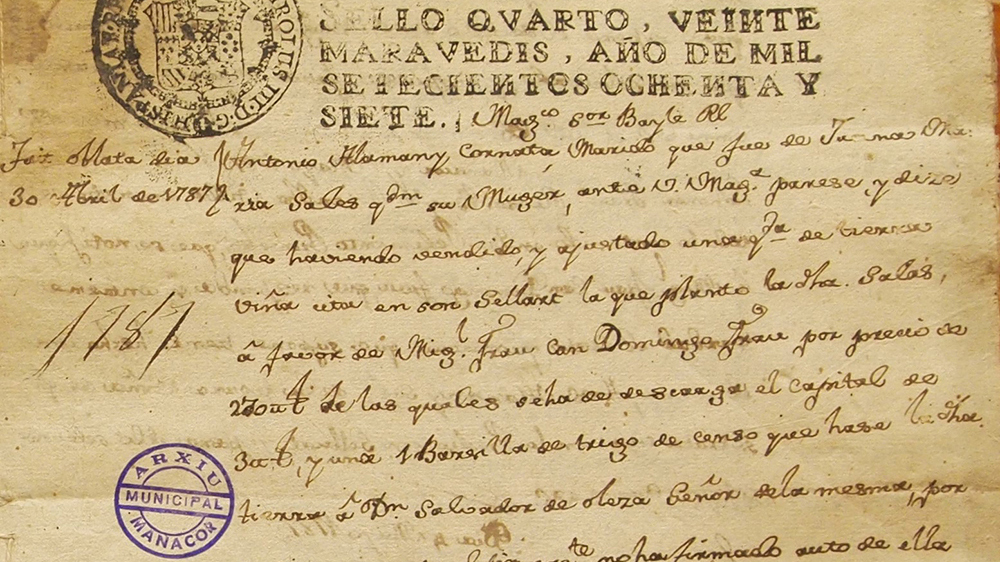 SELLO QVARTO, VEINTE
MARAVEDIS, AÑO DE MIL
SETECIENTOS OCHENTA Y
SIETE.
CAROLUS III D. G. HISPANIAR
Magco Sor Bayle Rl
Fat oblata dia
30 Abril de 1787
Antonio Alamany Cornata, Marido que fue de Juana Ma-
ria Sales qdm su Muger, ante V. Magª parese, y dize
que haviendo vendido, y ajustado una qª de tierra
viña cita en son Sellart la que planto la dha. Salas,
1787
â favor de Migl. Frau Can Domingo Frau por precio de
de las quales seha de descarga el Capital de
30 ut, y una 1 Barsilla de trigo de censo que hase la dha.
tierra â Dn Salvador de oleza Señor dela mesma, por
no ha firmado auto de ella
ARXIU
MUNICIPAL
MANACOR